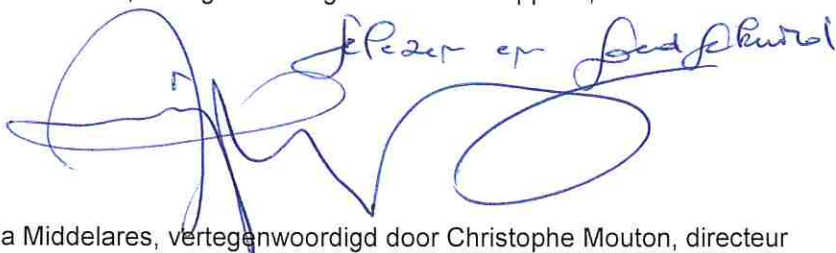 gelezen en goedgekeurd
a Middelares, vertegenwoordigd door Christophe Mouton, directeur